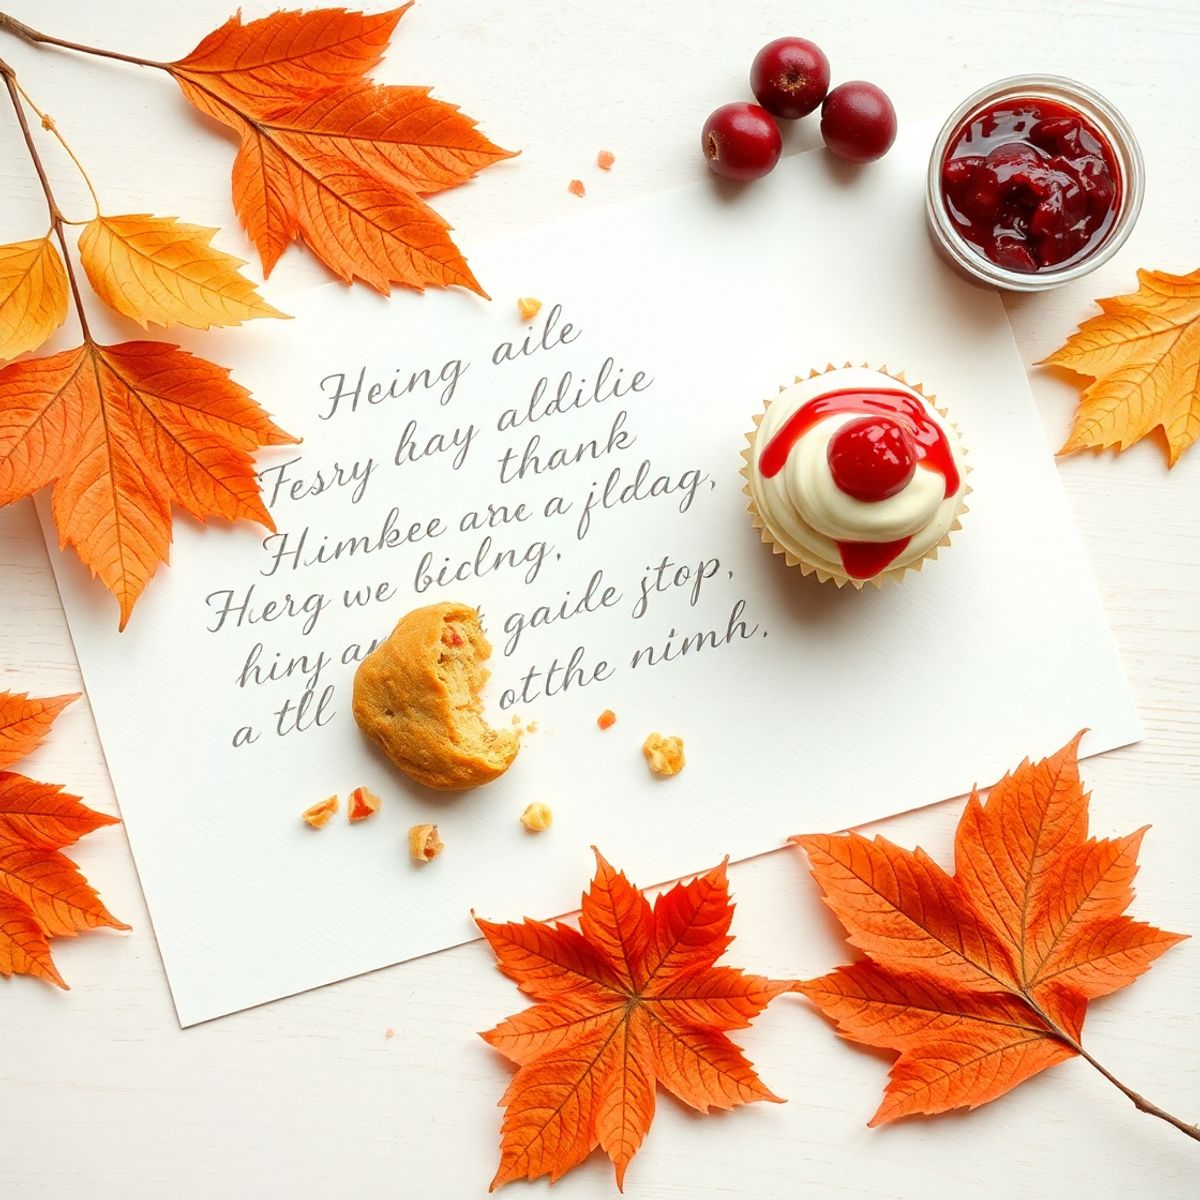 Heing aile
Fesry hay aldilie
thank
Himkee are a jldag,
Herg we bidng,
hinj gaide jtop,
a tll otthe nimh.